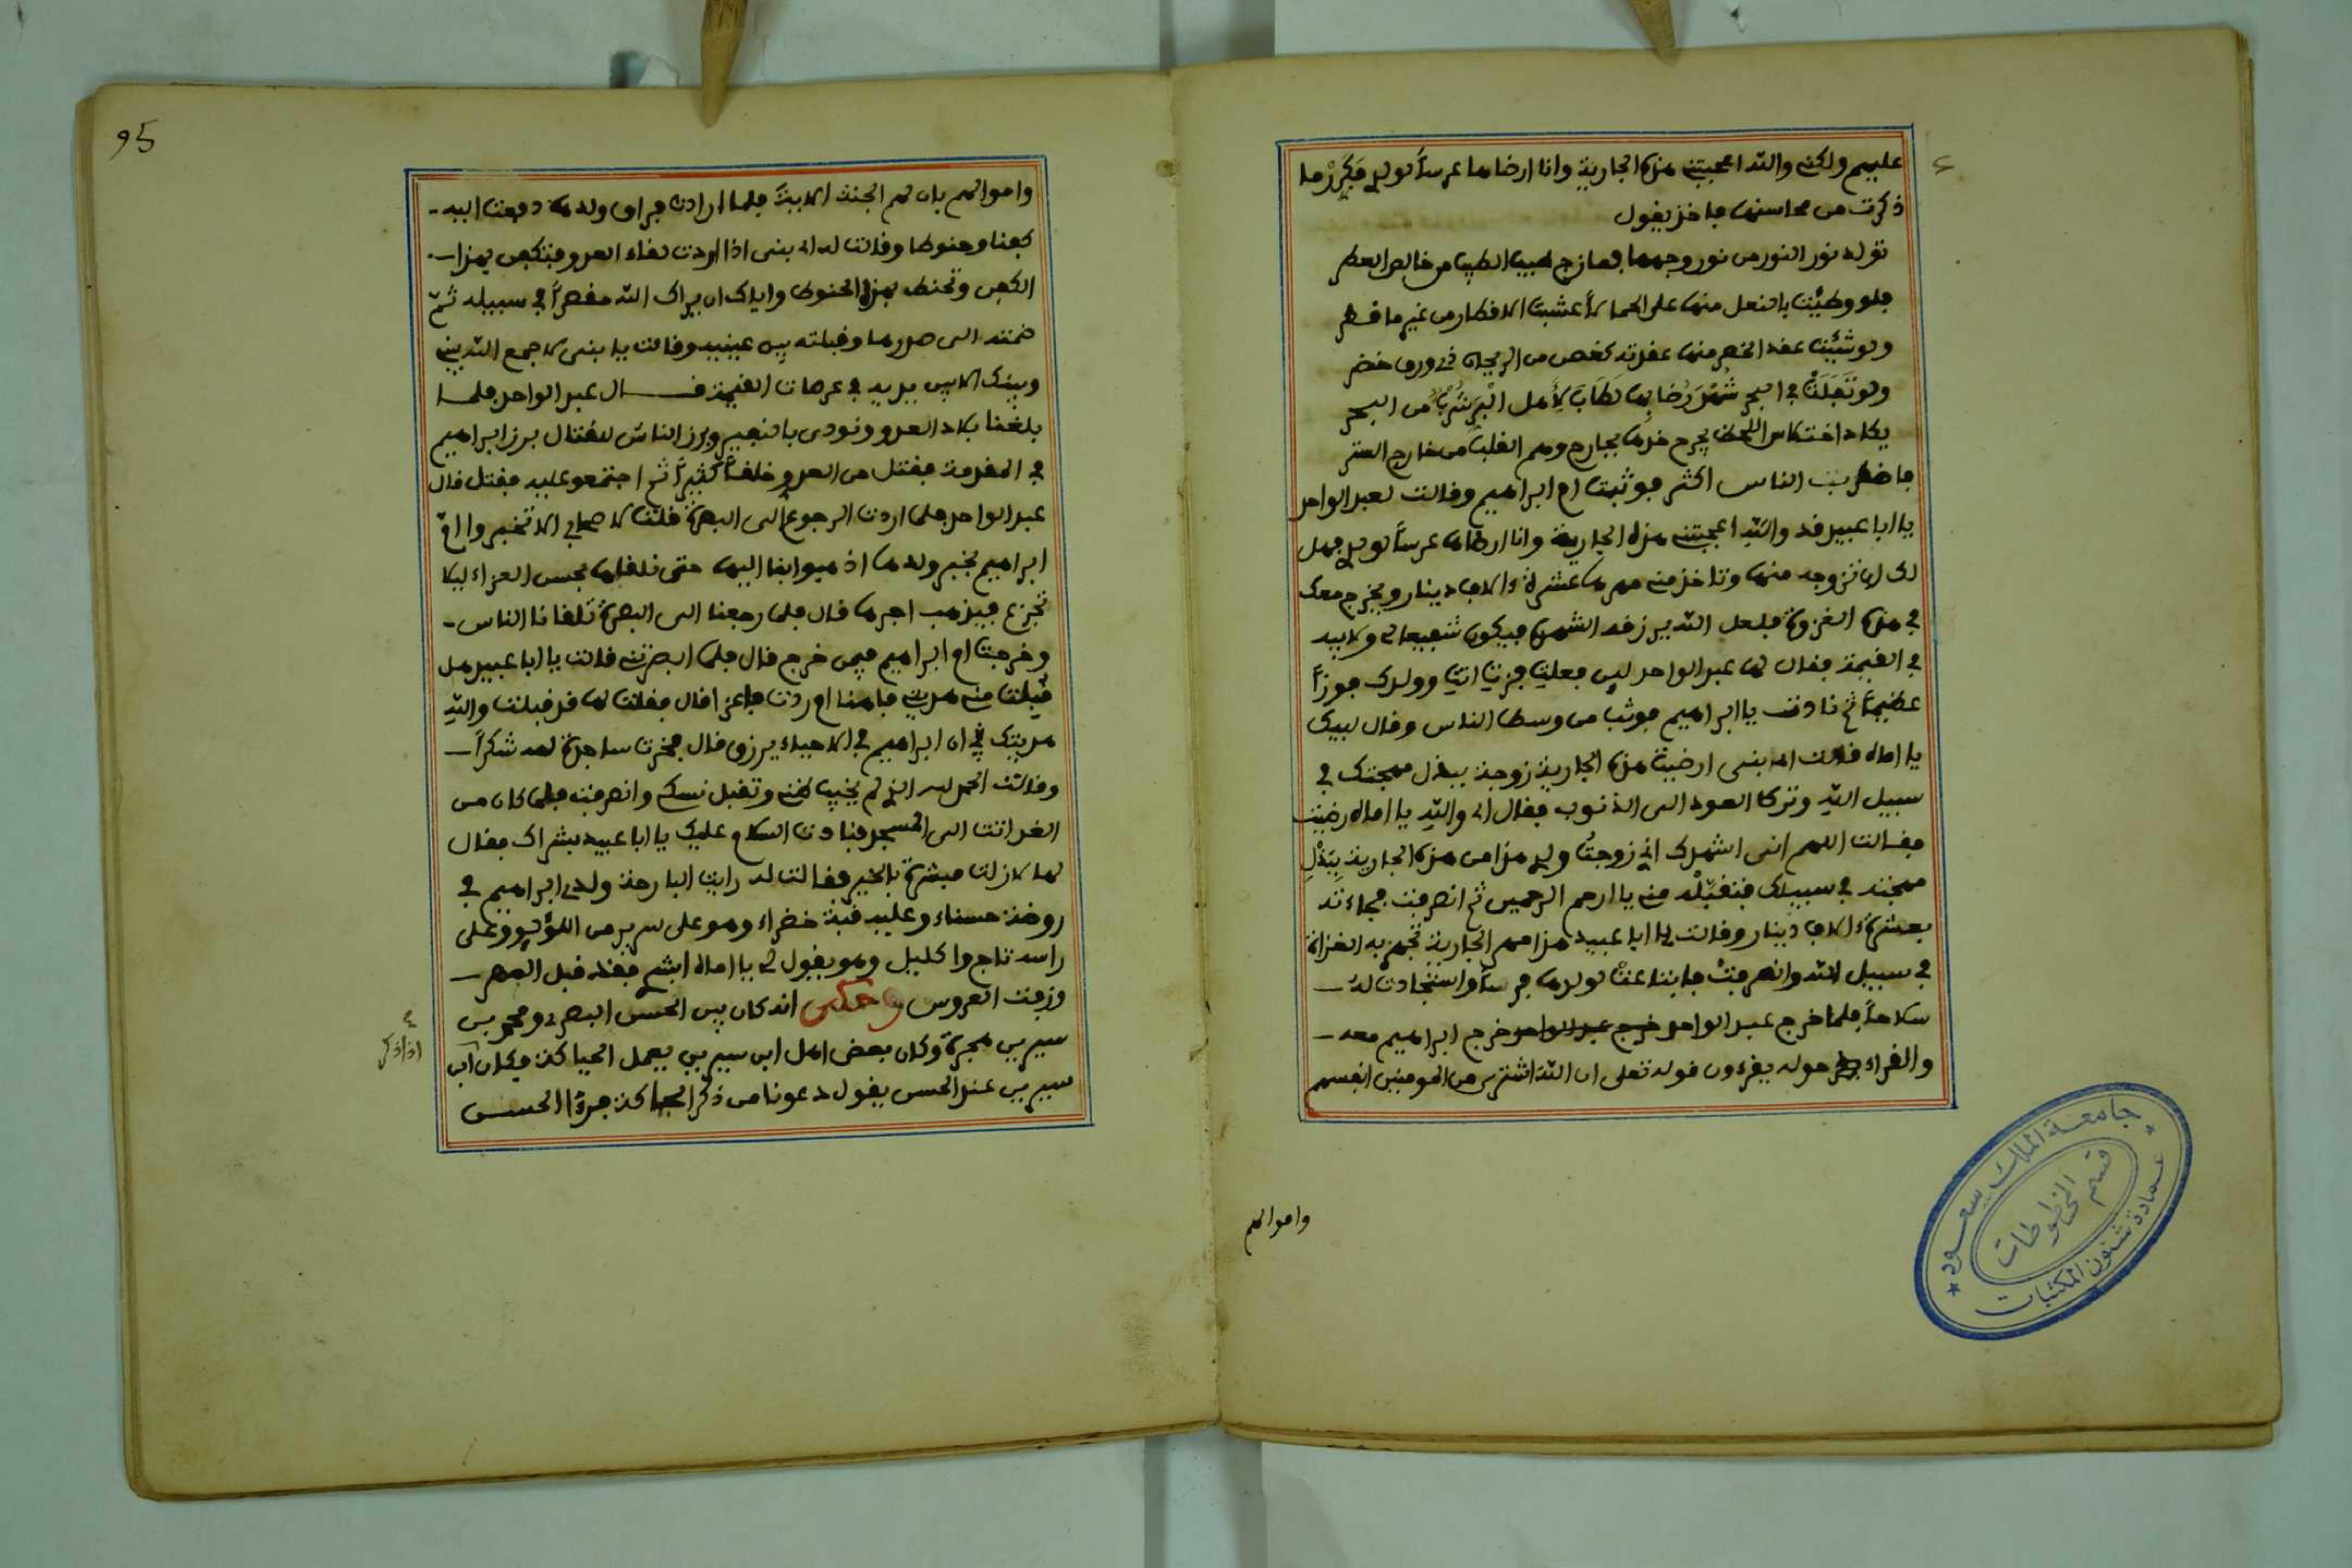 عليهم ولكني والله اعجبتني هذه الجارية وانا ارضاها عرسا لولدي فكرر ما
ذكرت من محاسنها فاخذ يقول
تولد نور النور من نور وجهها فمازج طيب الطيب من خالص العطر
فلو وطئت بالنعل منها على الحصا لاعشبت الاقطار من غير ما قطر
ولو شئت عقد الخصر منها عقدته كغصن من الريحان ذي ورق خضر
ولو تفلت في البحر شهد رضابها لطاب لأهل البر شرب من البحر
يكاد اختلاس اللحظ يجرح خدها بجارح وهم القلب من خارج الستر
فاضطربت الناس اكثر فوثبت ام ابراهيم وقالت لعبد الواحد
يا ابا عبيد قد والله اعجبتني هذه الجارية وانا ارضاها عرسا لولدي فهل
لك ان تزوجه منها وتاخذ مني مهرها عشرة ءالاف دينار ويخرج معك
في هذه الغزوة فلعل الله يرزقه الشهادة فيكون شفيعا لي ولابيه
في القيمة فقال لها عبد الواحد لين فعلت فزت انت وولدك فوزا
عظيما ثم نادت يا ابراهيم فوثب من وسط الناس وقال لبيك
يا اماه قالت اى بنى ارضيت هذه الجارية زوجة ببذل مهجتك في
سبيل الله وترك العود الى الذنوب فقال اى والله يا اماه رضيت
فقالت اللهم انى اشهدك اني زوجت ولدي هذا من هذه الجارية ببذل
مهجته في سبيلك فتقبله مني يا ارحم الرحمين ثم انصرفت فجاءته
بعشرة ءالاف دينار وقالت يا ابا عبيد هذا مهر الجارية تجهز به الغزاة
في سبيل الله وانصرفت فابتاعت لولدها فرسا واستجادت له
سلاحا فلما خرج عبد الواحد خرج عبد الواحد خرج ابراهيم معه
والقراء حوله يقرءون قوله تعلى ان الله اشترى من المومنين انفسهم
واموالهم
95
واموالهم بان لهم الجنة الاية فلما ارادت فراق ولدها دفعت اليه
كفنا وحنوطا وقالت له اى بنى اذا اردت لقاء العدو فتكفن بهذا
الكفن وتحنط بهذا الحنوط واياك ان يراك الله مقصرا في سبيله ثم
ضمته الى صدرها وقبلته بين عينيه وقالت يا بنى لا جمع الله بيني
وبينك الا بين يديه في عرصات القيمة قال عبد الواحد فلما
بلغنا بلاد العدو ونودى بالنفير وبرز الناس للقتال برز ابراهيم
في المقدمة فقتل من العدو خلقا كثيرا ثم اجتمعو عليه فقتل قال
عبد الواحد فلما اردت الرجوع الى البصرة قلت لاصحابي لا تخبروا ام
ابراهيم بخبر ولدها اذهبوا بنا اليها حتى نلقاها بحسن العزاء ليلا
تجزع فيذهب اجرها قال فلما رجعنا الى البصرة تلقانا الناس
وخرجت ام ابراهيم فيمن خرج قال فلما ابصرتني قالت يا ابا عبيد هل
قبلت مني هديتي فاهنا ام ردت فاعزا قال فقلت لها قد قبلت والله
هديتك ان ابراهيم في الاحياء يرزق قال فخرت ساجدة لله شكرا
وقالت الحمد لله الذي لم يخيب ظني وتقبل نسكي وانصرفت فلما كان من
الغد اتت الى المسجد فنادت السلام عليك يا ابا عبيد بشراك فقال
لها لا زلت مبشرة بالخير فقالت له رايت البارحة ولدي ابراهيم في
روضة حسناء وعليه قبة خضراء وهو على سرير من اللؤلؤ وعلى
راسه تاج واكليل وهو يقول لي يا اماه ابشري فقد قبل المهر
وزفت العروس وحكى انه كان بين الحسن البصري ومحمد بن
سيرين هجرة وكان بعض اهل ابن سيرين يعمل الحياكة فكان ابن
سيرين عند الحسن يقول دعونا من ذكر الحياكة فرءا الحسن
اذا ذكر
جامعة الملك سعود
قسم المخطوطات
عمادة شئون المكتبات